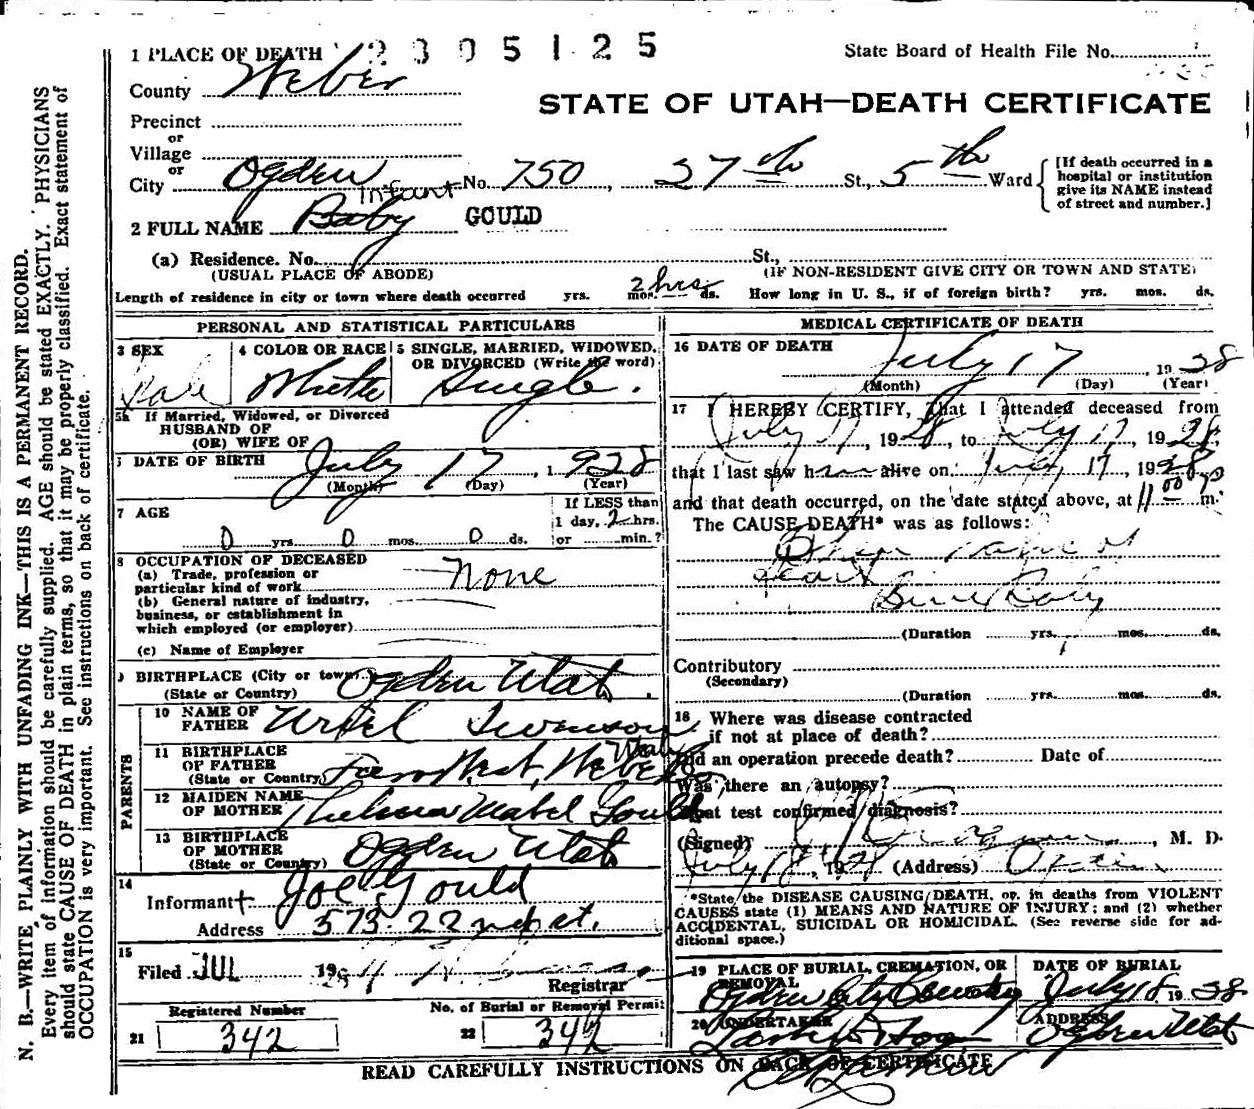 1 PLACE OF DEATH 2305125 State Board of Health File No.
County Weber
STATE OF UTAH—DEATH CERTIFICATE
Precinct
or
Village
or
City Ogden No. 750, 27th St., 5th Ward
[If death occurred in a
hospital or institution
give its NAME instead
of street and number.]
Infant
2 FULL NAME Baby GOULD
(a) Residence. No. St.,
(USUAL PLACE OF ABODE) (IF NON-RESIDENT GIVE CITY OR TOWN AND STATE)
Length of residence in city or town where death occurred yrs. mos. 2 hrs ds. How long in U. S., if of foreign birth? yrs. mos. ds.
PERSONAL AND STATISTICAL PARTICULARS
3 SEX 4 COLOR OR RACE 5 SINGLE, MARRIED, WIDOWED,
OR DIVORCED (Write the word)
White Single.
5a If Married, Widowed, or Divorced
HUSBAND OF
(OR) WIFE OF
DATE OF BIRTH July 17, 1928
(Month) (Day) (Year)
7 AGE If LESS than
1 day, 2 hrs.
0 yrs. 0 mos. 0 ds. or min.?
8 OCCUPATION OF DECEASED
(a) Trade, profession or
particular kind of work None
(b) General nature of industry,
business, or establishment in
which employed (or employer)
(c) Name of Employer
9 BIRTHPLACE (City or town)
(State or Country) Ogden Utah.
PARENTS
10 NAME OF
FATHER Uriel Swenson
11 BIRTHPLACE
OF FATHER
(State or Country) Farr West, Weber Co Utah
12 MAIDEN NAME
OF MOTHER Thelma Mabel Gould
13 BIRTHPLACE
OF MOTHER
(State or Country) Ogden Utah
14
Informant Joe Gould
Address 573-22nd st.
15
Filed JUL 19
Registrar
Registered Number No. of Burial or Removal Permit
21 342 22 342
MEDICAL CERTIFICATE OF DEATH
16 DATE OF DEATH July 17, 1928
(Month) (Day) (Year)
17 I HEREBY CERTIFY, that I attended deceased from
July 17, 1928, to July 17, 1928,
that I last saw h alive on July 17, 1928,
and that death occurred, on the date stated above, at 11 00 p m.
The CAUSE DEATH* was as follows:
(Duration yrs. mos. ds.
Contributory
(Secondary)
(Duration yrs. mos. ds.
18 Where was disease contracted
if not at place of death?
Did an operation precede death? Date of
Was there an autopsy?
What test confirmed diagnosis?
(Signed) , M. D.
July 18, 1928 (Address) Ogden
*State the DISEASE CAUSING DEATH, or, in deaths from VIOLENT
CAUSES state (1) MEANS AND NATURE OF INJURY; and (2) whether
ACCIDENTAL, SUICIDAL OR HOMICIDAL. (See reverse side for ad-
ditional space.)
19 PLACE OF BURIAL, CREMATION, OR
REMOVAL DATE OF BURIAL
Ogden City Cemetery July 18 1928
20 UNDERTAKER ADDRESS
Ogden Utah
READ CAREFULLY INSTRUCTIONS ON BACK OF CERTIFICATE
N. B.—WRITE PLAINLY WITH UNFADING INK—THIS IS A PERMANENT RECORD.
Every item of information should be carefully supplied. AGE should be stated EXACTLY. PHYSICIANS
should state CAUSE OF DEATH in plain terms, so that it may be properly classified. Exact statement of
OCCUPATION is very important. See instructions on back of certificate.